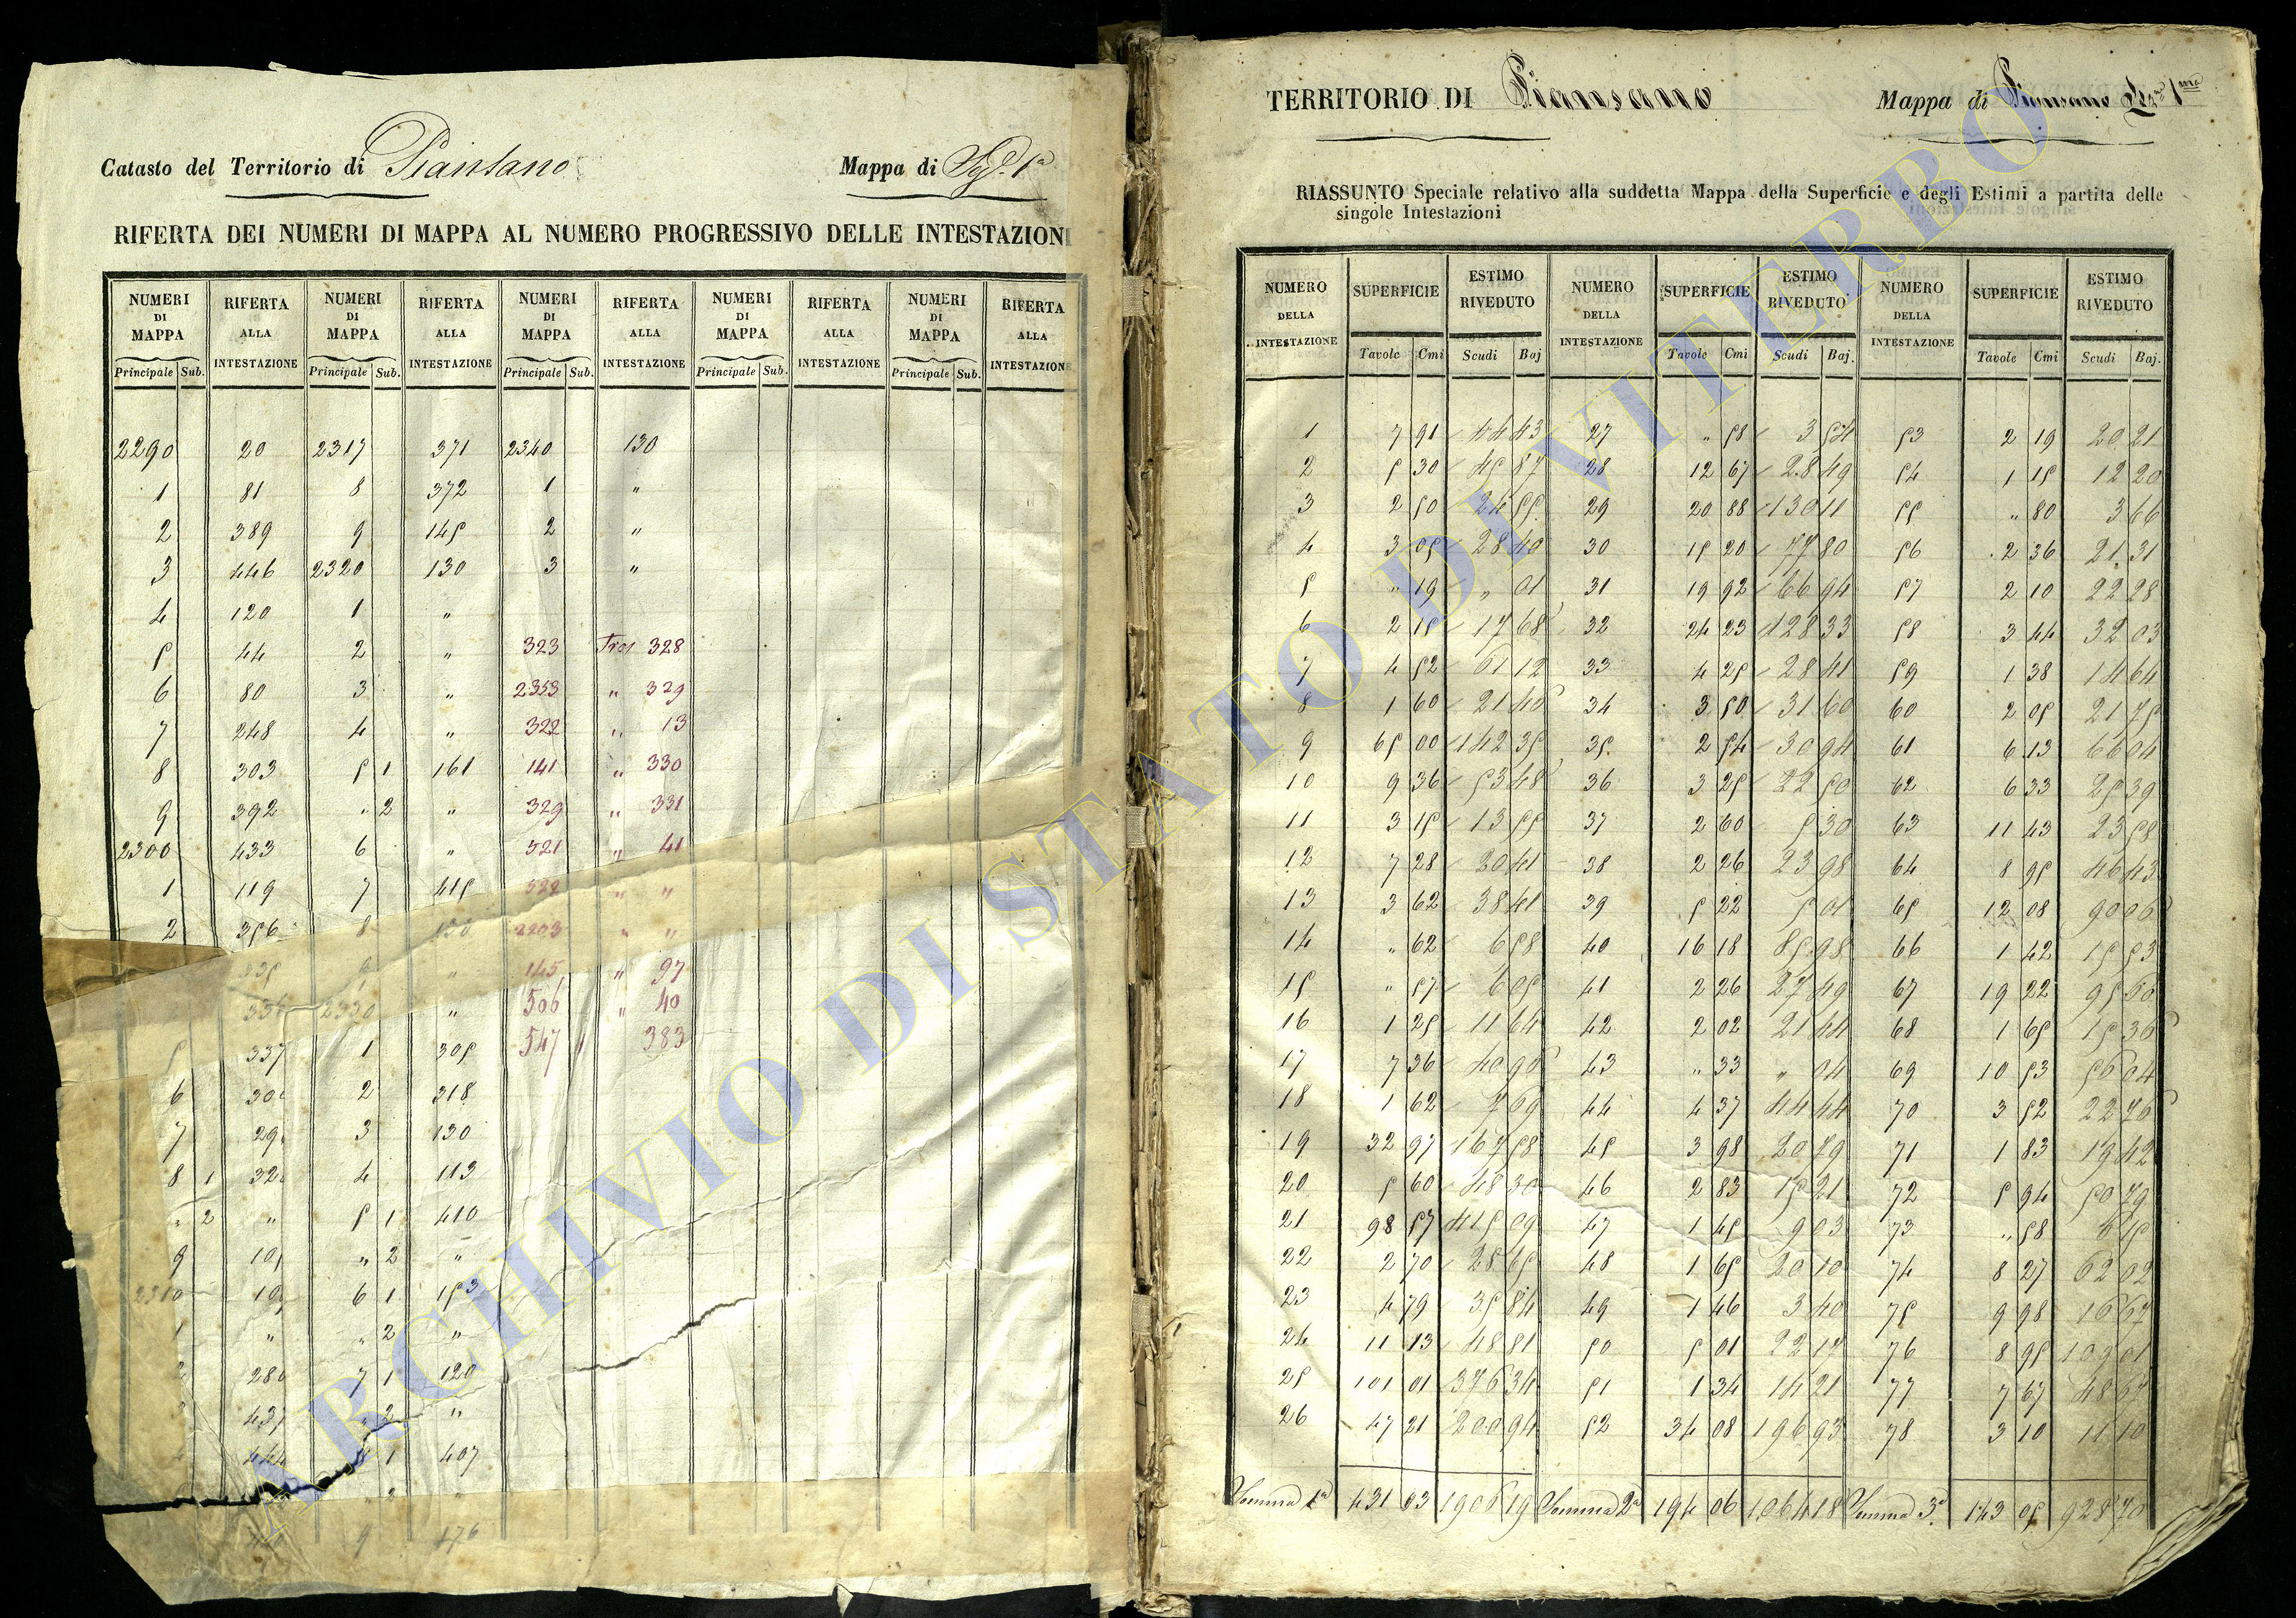 Catasto del Territorio di Piansano Mappa di Sez. 1a
RIFERTA DEI NUMERI DI MAPPA AL NUMERO PROGRESSIVO DELLE INTESTAZIONI
NUMERI DI MAPPA RIFERTA ALLA INTESTAZIONE NUMERI DI MAPPA RIFERTA ALLA INTESTAZIONE NUMERI DI MAPPA RIFERTA ALLA INTESTAZIONE NUMERI DI MAPPA RIFERTA ALLA INTESTAZIONE NUMERI DI MAPPA RIFERTA ALLA INTESTAZIONE
Principale Sub. Principale Sub. Principale Sub. Principale Sub. Principale Sub.
2290 20 2317 371 2340 130
1 81 8 372 1 "
2 389 9 145 2 "
3 446 2320 130 3 "
4 120 1 "
5 44 2 " 323 328
6 80 3 " 2353 " 329
7 248 4 " 322 " 13
8 303 5 1 161 141 " 330
9 392 " 2 " 329 " 331
2300 433 6 " 521 " 41
1 119 7 415 522 " "
2 356 8 130 2203 " "
335 9 " 145 " 97
336 2330 " 506 " 40
5 337 1 305 547 383
6 30 2 318
7 29 3 130
8 1 32 4 113
" 2 " 5 1 410
9 10 " 2 "
2310 10 6 1 153
1 " " 2 "
2 280 7 1 120
437 " 2 "
444 8 1 407
" 2 "
9 176
TERRITORIO DI Piansano Mappa di Piansano Sez. 1ma
RIASSUNTO Speciale relativo alla suddetta Mappa della Superficie e degli Estimi a partita delle
singole Intestazioni
NUMERO DELLA INTESTAZIONE SUPERFICIE ESTIMO RIVEDUTO NUMERO DELLA INTESTAZIONE SUPERFICIE ESTIMO RIVEDUTO NUMERO DELLA INTESTAZIONE SUPERFICIE ESTIMO RIVEDUTO
Tavole Cmi Scudi Baj Tavole Cmi Scudi Baj. Tavole Cmi Scudi Baj.
1 7 91 44 43 27 " 58 3 54 53 2 19 20 21
2 5 30 45 87 28 12 67 28 49 54 1 15 12 20
3 2 50 24 55 29 20 88 130 11 55 " 80 3 66
4 3 05 28 40 30 15 20 77 80 56 2 36 21 31
5 " 19 " 01 31 19 92 66 94 57 2 10 22 28
6 2 15 17 68 32 24 23 128 33 58 3 44 32 03
7 4 52 61 12 33 4 25 28 41 59 1 38 14 64
8 1 60 21 40 34 3 50 31 60 60 2 05 21 75
9 65 00 142 35 35 2 54 30 94 61 6 13 66 04
10 9 36 53 48 36 3 25 22 50 62 6 33 25 39
11 3 15 13 55 37 2 60 5 30 63 11 43 23 58
12 7 28 20 41 38 2 26 23 98 64 8 95 46 43
13 3 62 38 41 39 5 22 5 01 65 12 08 90 06
14 " 62 6 58 40 16 18 85 98 66 1 42 15 53
15 " 57 6 05 41 2 26 27 49 67 19 22 95 60
16 1 25 11 64 42 2 02 21 44 68 1 65 15 36
17 7 36 40 90 43 " 33 " 04 69 10 53 56 04
18 1 62 7 69 44 4 37 44 44 70 3 52 22 76
19 32 97 167 58 45 3 98 20 79 71 1 83 19 42
20 5 60 48 30 46 2 83 15 21 72 5 94 50 79
21 98 57 415 09 47 1 45 9 03 73 " 58 6 15
22 2 70 28 65 48 1 65 20 10 74 8 27 62 02
23 4 79 35 84 49 1 46 3 40 75 9 98 16 67
24 11 13 48 81 50 5 01 22 17 76 8 95 109 01
25 101 01 376 34 51 1 34 14 21 77 7 67 48 67
26 47 21 200 94 52 34 08 196 93 78 3 10 11 10
Somma 1a 431 03 1906 19 Somma 2a 194 06 1064 18 Somma 3a 143 05 928 70
ARCHIVIO DI STATO DI VITERBO